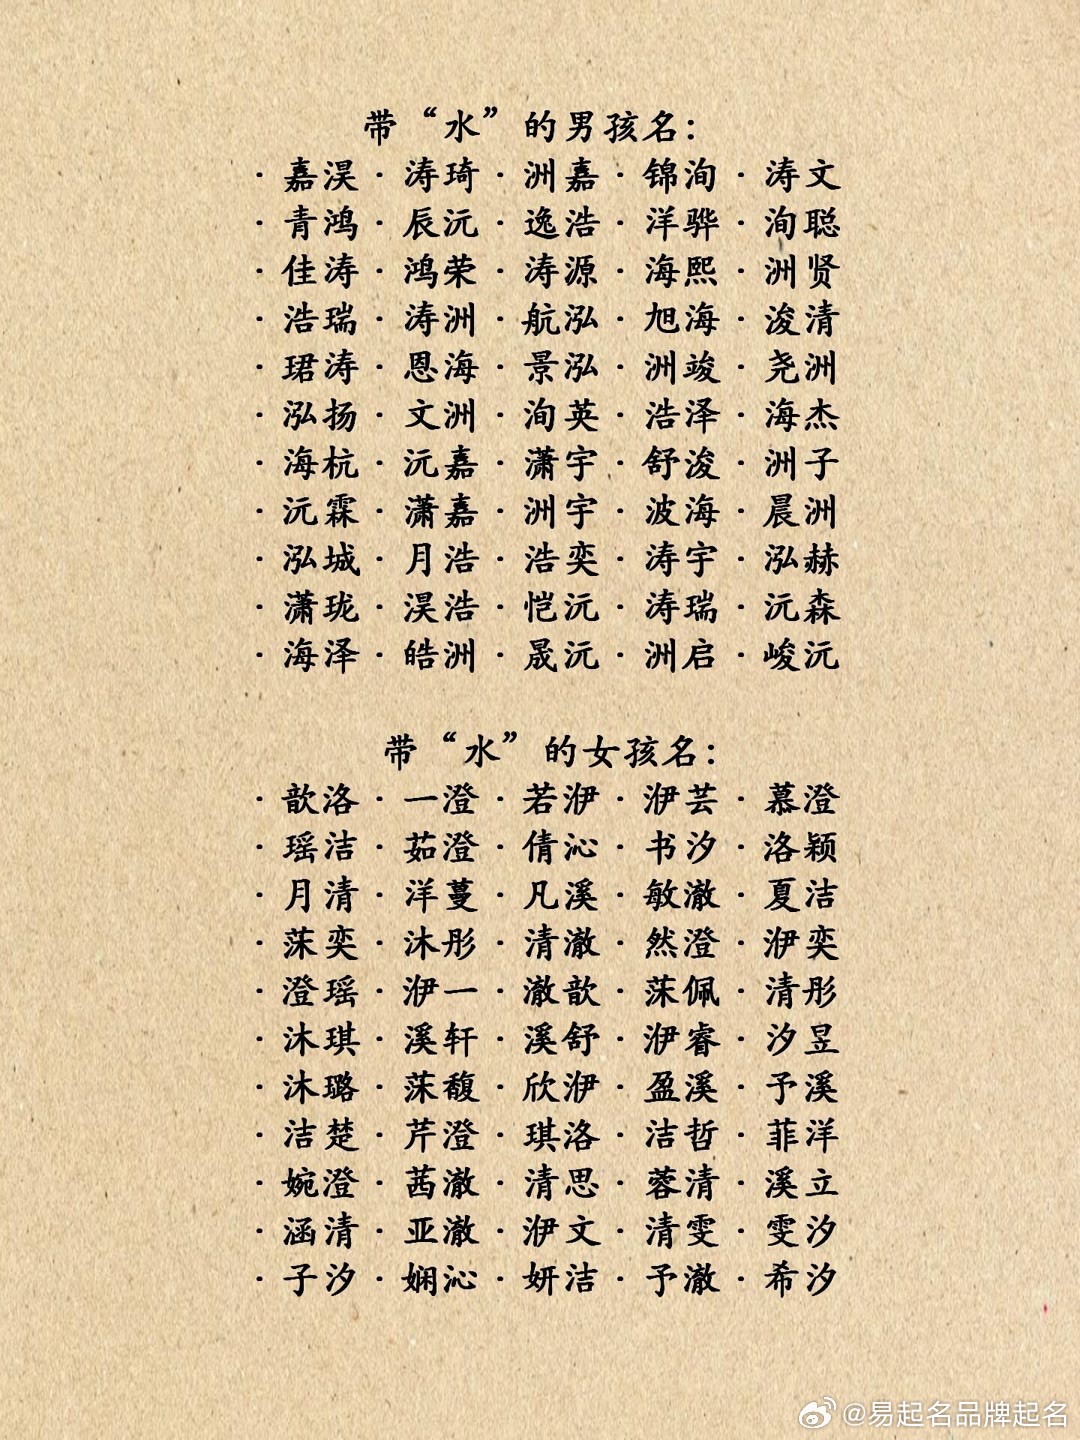 带“水”的男孩名：
·嘉淏·涛琦·洲嘉·锦洵·涛文
·青鸿·辰沅·逸浩·洋骅·洵聪
·佳涛·鸿荣·涛源·海熙·洲贤
·浩瑞·涛洲·航泓·旭海·浚清
·珺涛·恩海·景泓·洲竣·尧洲
·泓扬·文洲·洵英·浩泽·海杰
·海杭·沅嘉·潇宇·舒浚·洲子
·沅霖·潇嘉·洲宇·波海·晨洲
·泓城·月浩·浩奕·涛宇·泓赫
·潇珑·淏浩·恺沅·涛瑞·沅森
·海泽·皓洲·晟沅·洲启·峻沅
带“水”的女孩名：
·歆洛·一澄·若洢·洢芸·慕澄
·瑶洁·茹澄·倩沁·书汐·洛颖
·月清·洋蔓·凡溪·敏澈·夏洁
·莯奕·沐彤·清澈·然澄·洢奕
·澄瑶·洢一·澈歆·莯佩·清彤
·沐琪·溪轩·溪舒·洢睿·汐昱
·沐璐·莯馥·欣洢·盈溪·予溪
·洁楚·芹澄·琪洛·洁哲·菲洋
·婉澄·茜澈·清思·蓉清·溪立
·涵清·亚澈·洢文·清雯·雯汐
·子汐·娴沁·妍洁·予澈·希汐
@易起名品牌起名